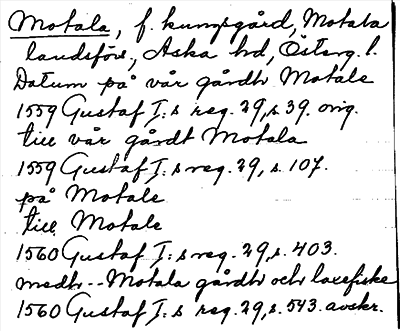 Motala, f. kungsgård, Motala
landsförs, Aska hd, Österg. l.
Datum på vår gårdh Motale
1559 Gustaf I:s reg. 29, s 39. orig.
till vår gårdt Motala
1559 Gustaf I:s reg. 29, s. 107.
på Motale
till Motale
1560 Gustaf I:s reg. 29, s. 403.
medh -- Motala gårdh och laxefiske
1560 Gustaf I:s reg. 29, s. 543. avskr.